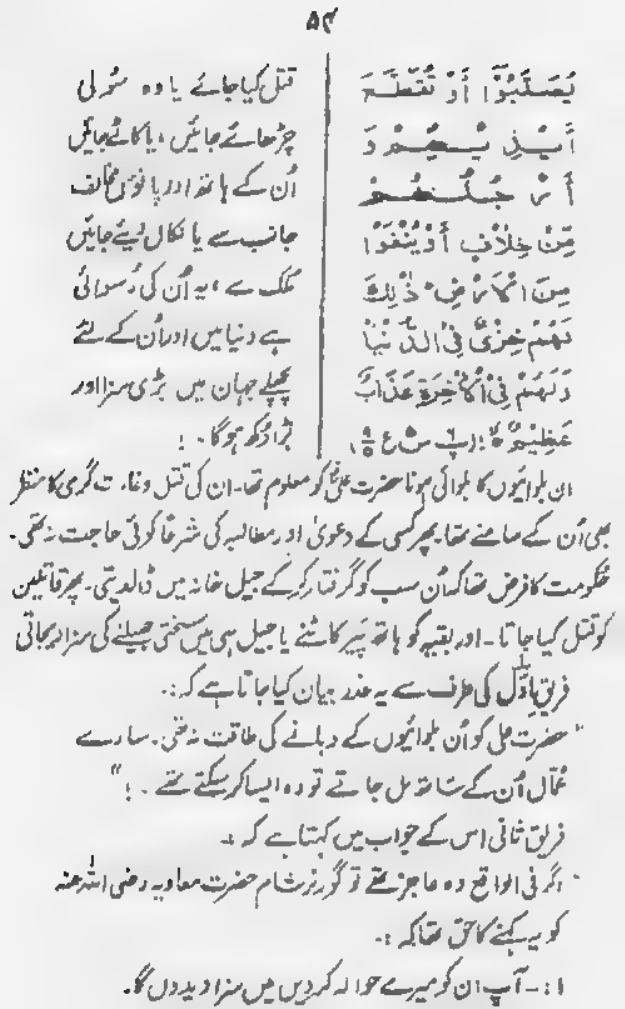 ۵۴
یُصَلَّبُوْٓا اَوْ تُقَطَّعَ
اَیْدِیْـہِمْ وَ
اَرْجُلُـہُمْ
مِّنْ خِلَافٍ اَوْ یُنْفَوْا
مِنَ الْاَرْضِ ذٰلِکَ
لَھُمْ خِزْیٌ فِی الدُّنْیَا
وَلَھُمْ فِی الْاٰخِرَۃِ عَذَابٌ
عَظِیْمٌ ہ (پ ۶ س ۵ ع ۹)
قتل کیا جائے یا وہ سُولی
چڑھائے جائیں، یا کاٹے جائیں
اُن کے ہاتھ اور پانوں مخالف
جانب سے یا نکال لیئے جائیں
مُلک سے، یہ اُن کی رُسوائی
ہے دنیا میں اور اُن کے لئے
پچھلے جہان میں بڑی سزا اور
بڑا دُکھ ہوگا۔!
ان بلوائیوں کا بلوائی ہونا حضرت علیؓ کو معلوم تھا۔ ان کی قتل و غارت گری کا منظر
بھی اُن کے سامنے تھا۔ پھر کسی کے دعویٰ اور مطالبہ کی شرعًا کوئی حاجت نہ تھی۔
حُکومت کا فرض تھا کہ اُن سب کو گرفتار کرکے جیل خانہ میں ڈالدیتی۔ پھر قاتلین
کو قتل کیا جاتا۔ اور بقیہ کو ہاتھ پَیر کاٹنے یا جیل ہی میں سختی جھیلنے کی سزا دیجاتی
فریقِ اوّل کی طرف سے یہ عذر بیان کیا جاتا ہے کہ:۔
"حضرت علی کو اُن بلوائیوں کے دبانے کی طاقت نہ تھی۔ سارے
عُمّال اُن کے ساتھ مل جاتے تو وہ ایسا کر سکتے تھے۔!"
فریق ثانی اس کے جواب میں کہتا ہے کہ :۔
"اگر فی الواقع وہ عاجز تھے تو گورنر شام حضرت معاویہ رضی اللہ عنہ
کو یہ کہنے کا حق تھا کہ :۔
۱:۔ آپ ان کو میرے حوالہ کردیں میں سزا دیدوں گا۔